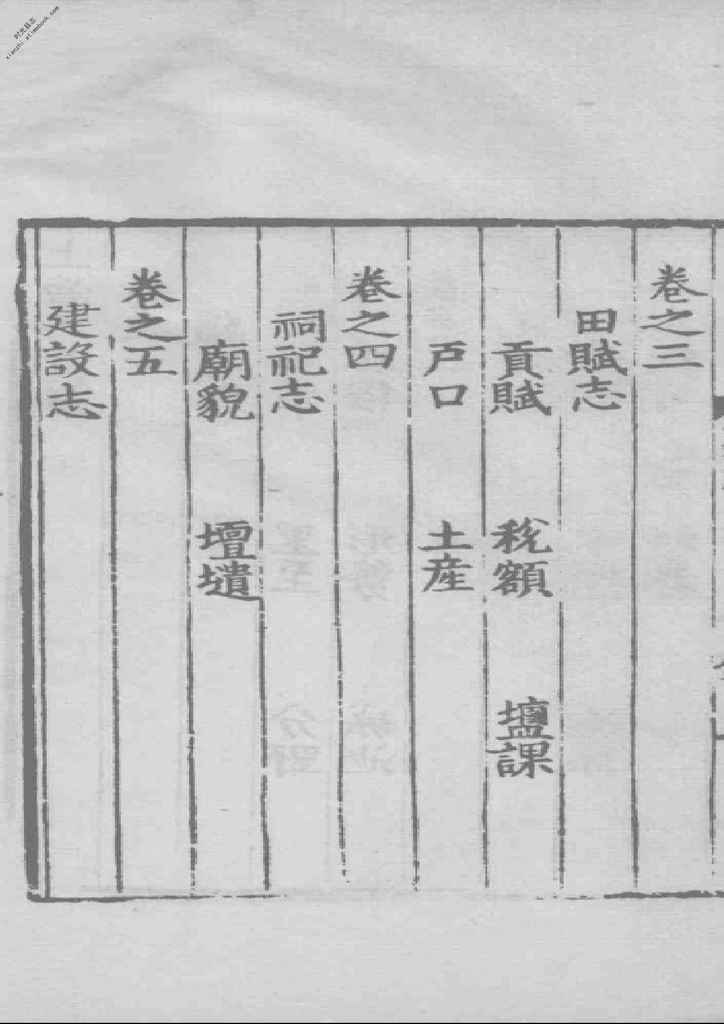 卷之三
田賦志
貢賦 稅額 壚課
戸口 土産
卷之四
祠祀志
廟貌 壇壝
卷之五
建設志